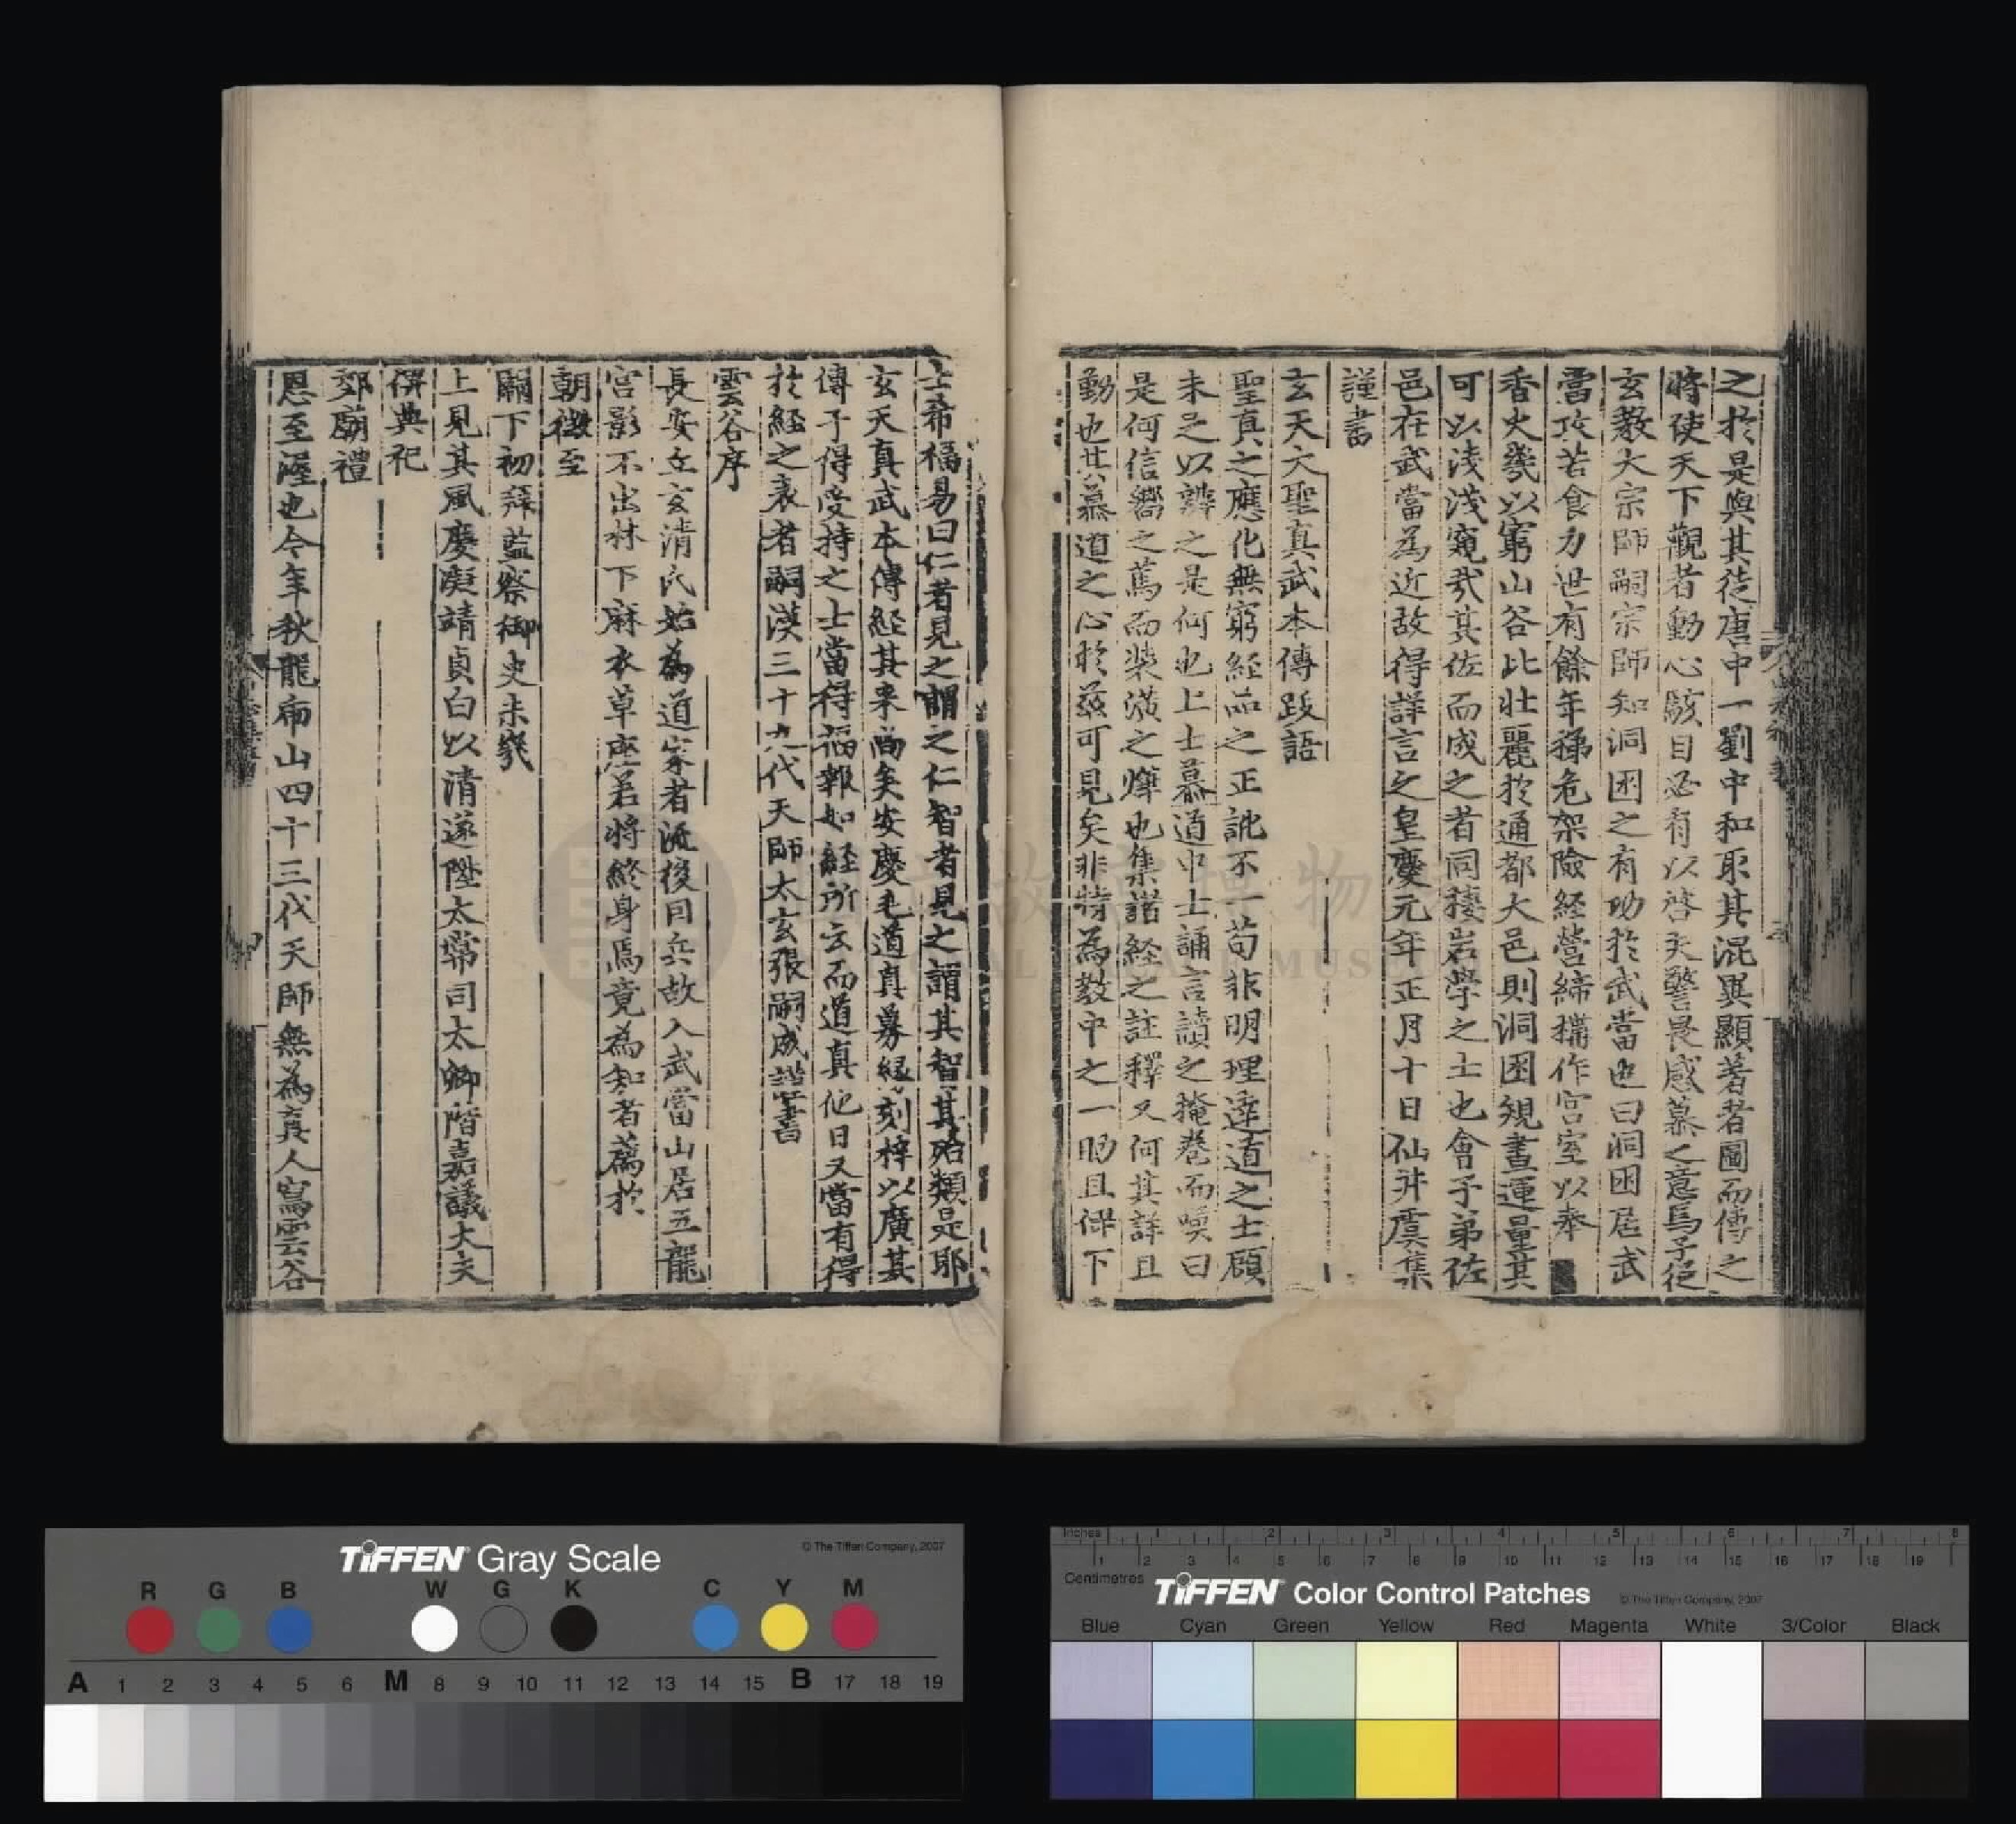 之於是與其徒唐中一劉中和取其混異顯著者圖而傳之
將使天下觀者動心駭目必有以啓夫警畏感慕之意焉予從
玄教大宗師嗣宗師知洞囦之有功於武當也曰洞囦居武
當攻苦食力逆有餘年梯危架險経營締搆作宮室以奉
香火幾以窮山谷比壯麗於通都大邑則洞囦䂓畫運量其
可以淺淺窺哉其佐而成之者同捿岩學之士也會予弟佐
邑在武當為近故得詳言之皇慶元年正月十日仙井虞集
謹書
玄天大聖真武本傳跋語
聖真之應化無窮経品之正訛不一苟非明理達道之士頋
未足以辨之是何也上士慕道中士誦言讀之掩卷而嘆曰
是何信嚮之蔦而裝潢之燁也集諸経之註釋又何其詳且
勤也其慕道之心於兹可見矣非特為教中之一助且俾下
士希福易曰仁者見之謂之仁智者見之謂其智其殆類是耶
玄天真武本傳経其来尚矣安慶毛道真募緣刻梓以廣其
傳于得受持之士當得福報如経所云而道真他日又當有得
於経之表者嗣漢三十九代天師太玄張嗣成謹書
雲谷序
長安丘玄清氏始為道家者流後因兵故入武當山居五龍
宮影不出林下麻衣草座若將終身焉竟為知者薦於
朝徵至
闕下初拜監察御史未幾
上見其風慶庚靖貞白以清遂陞太常司太卿階嘉議大夫
俾典祀
郊廟禮
恩至渥也今年秋龍甫山四十三代天師無為真人寫雲谷
TIFFEN Gray Scale
© The Tiffen Company, 2007
R G B W G K C Y M
A 1 2 3 4 5 6 M 8 9 10 11 12 13 14 15 B 17 18 19
Inches 1 2 3 4 5 6 7 8
1 2 3 4 5 6 7 8 9 10 11 12 13 14 15 16 17 18 19
Centimetres
TIFFEN Color Control Patches
© The Tiffen Company, 2007
Blue Cyan Green Yellow Red Magenta White 3/Color Black